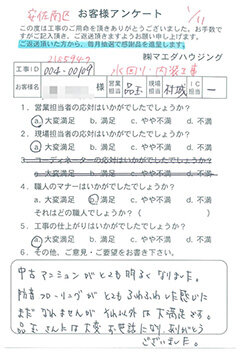 安佐南区 お客様アンケート 1/11
この度は工事のご用命を頂きありがとうございました。お手数で
すがご記入頂き、ご返送頂きますようお願い申し上げます。
ご返送頂いた方から、毎月抽選で感謝品を進呈します。
(株)マエダハウジング
工事ID 004-00109 水回り・内装工事
お客様名 様 営業担当 品玉 現場担当 村政 IC担当 ー
1. 営業担当者の応対はいかがでしたでしょうか?
a. 大変満足 b. 満足 c. やや不満 d. 不満
2. 現場担当者の応対はいかがでしたでしょうか?
a. 大変満足 b. 満足 c. やや不満 d. 不満
3. コーディネーターの応対はいかがでしたでしょうか?
a. 大変満足 b. 満足 c. やや不満 d. 不満
4. 職人のマナーはいかがでしたでしょうか?
a. 大変満足 b. 満足 c. やや不満 d. 不満
それはどの職人でしょうか?( )
5. 工事の仕上がりはいかがでしたでしょうか?
a. 大変満足 b. 満足 c. やや不満 d. 不満
6. その他、ご意見・ご要望をお書き下さい。
中古マンションがとても明るくなりました。
防音フローリングがとてもふわふわした感じで
まだなれませんが それ以外は大満足です。
品玉さんには大変お世話になり、ありがとう
ございました。